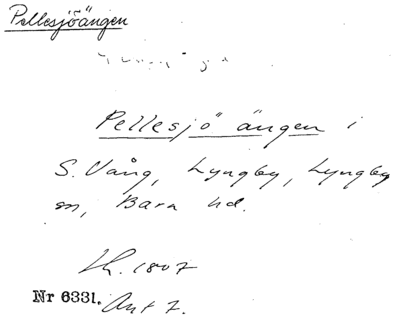 Pellesjöängen
Pellesjö ängen i
S. Vång, Lyngby, Lyngby
sn, Bara hd.
Lh. 1807
Nr 6331. Akt 7.